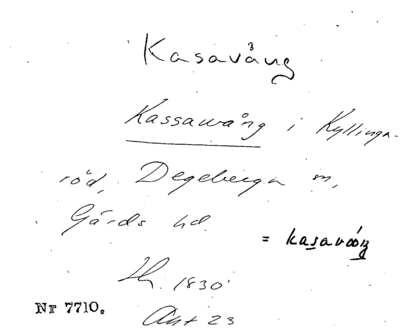 Kasavång
Kassawång i Kyllinga-
röd, Degeberga
Gärds hd.
= kasavåŋ
1830
Nr 7710. Akt 23